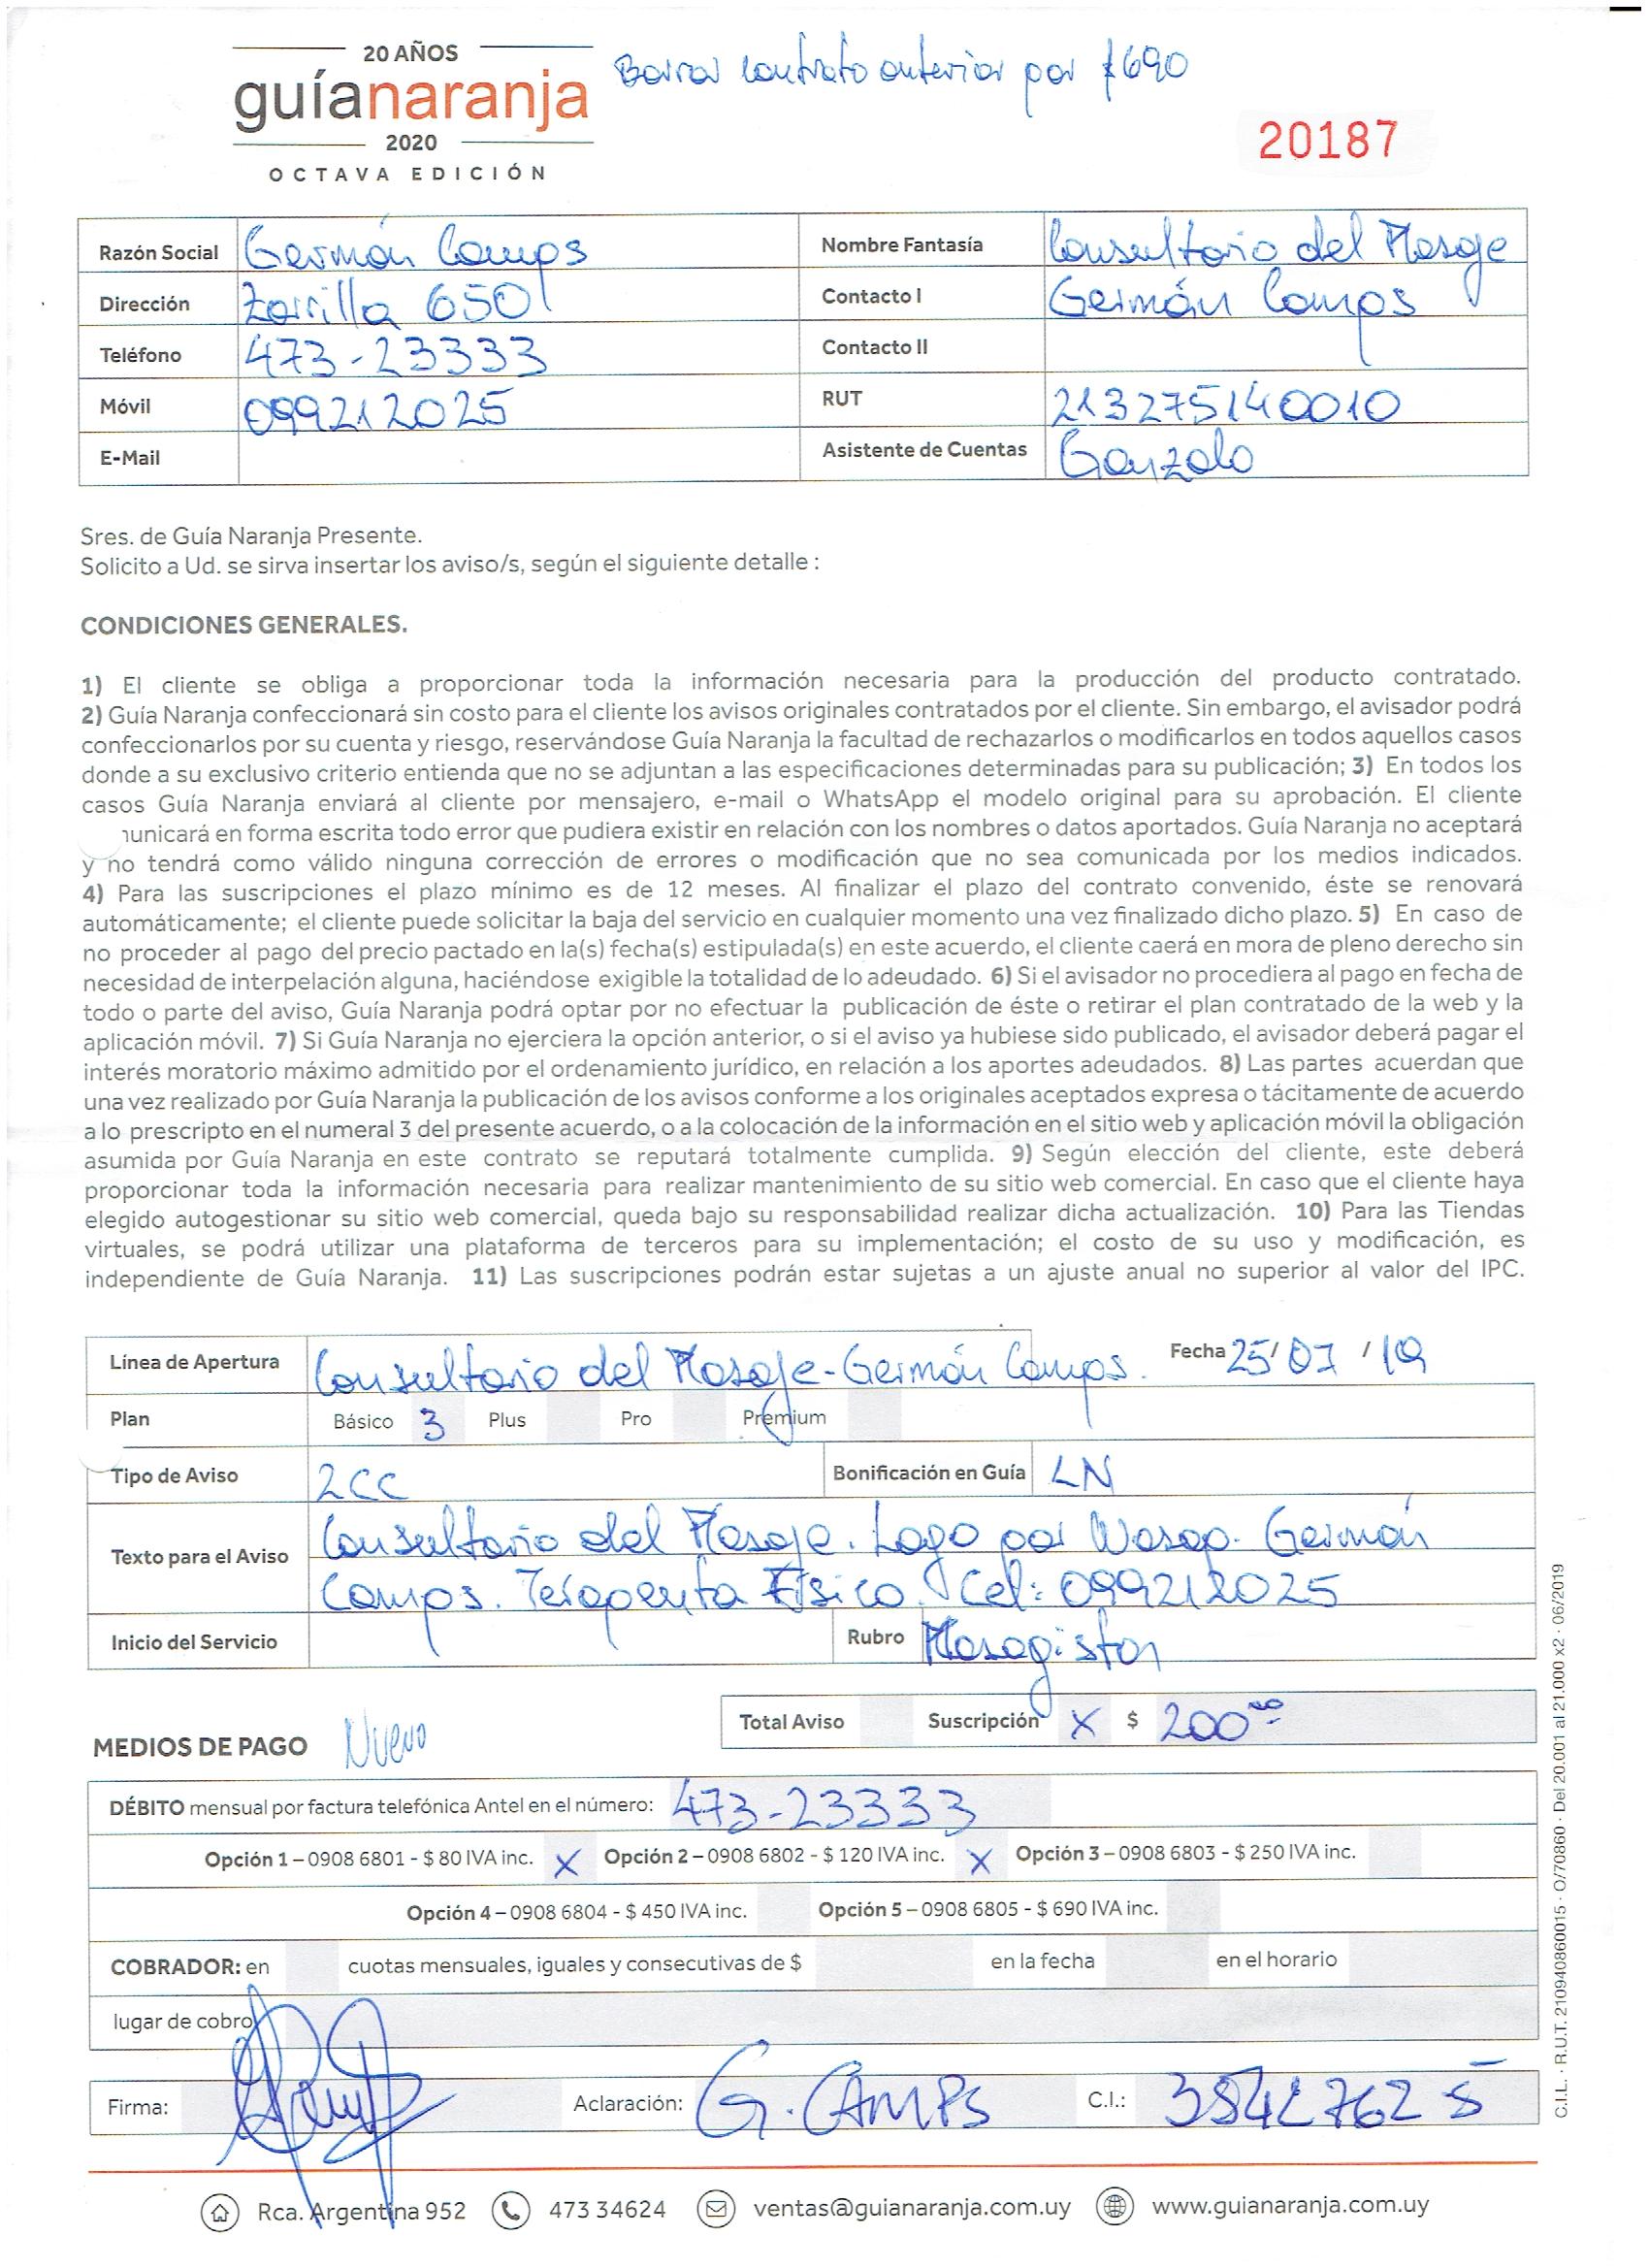 20 AÑOS
guíanaranja
2020
OCTAVA EDICIÓN
Borrar contrato anterior por $690
20187
Razón Social Germán Camps Nombre Fantasía Consultorio del Masaje
Dirección Zorrilla 650 Contacto I Germán Camps
Teléfono 473-23333 Contacto II
Móvil 099212025 RUT 213275140010
E-Mail Asistente de Cuentas Gonzalo
Sres. de Guía Naranja Presente.
Solicito a Ud. se sirva insertar los aviso/s, según el siguiente detalle :
CONDICIONES GENERALES.
1) El cliente se obliga a proporcionar toda la información necesaria para la producción del producto contratado.
2) Guía Naranja confeccionará sin costo para el cliente los avisos originales contratados por el cliente. Sin embargo, el avisador podrá
confeccionarlos por su cuenta y riesgo, reservándose Guía Naranja la facultad de rechazarlos o modificarlos en todos aquellos casos
donde a su exclusivo criterio entienda que no se adjuntan a las especificaciones determinadas para su publicación; 3) En todos los
casos Guía Naranja enviará al cliente por mensajero, e-mail o WhatsApp el modelo original para su aprobación. El cliente
unicará en forma escrita todo error que pudiera existir en relación con los nombres o datos aportados. Guía Naranja no aceptará
y no tendrá como válido ninguna corrección de errores o modificación que no sea comunicada por los medios indicados.
4) Para las suscripciones el plazo mínimo es de 12 meses. Al finalizar el plazo del contrato convenido, éste se renovará
automáticamente; el cliente puede solicitar la baja del servicio en cualquier momento una vez finalizado dicho plazo. 5) En caso de
no proceder al pago del precio pactado en la(s) fecha(s) estipulada(s) en este acuerdo, el cliente caerá en mora de pleno derecho sin
necesidad de interpelación alguna, haciéndose exigible la totalidad de lo adeudado. 6) Si el avisador no procediera al pago en fecha de
todo o parte del aviso, Guía Naranja podrá optar por no efectuar la publicación de éste o retirar el plan contratado de la web y la
aplicación móvil. 7) Si Guía Naranja no ejerciera la opción anterior, o si el aviso ya hubiese sido publicado, el avisador deberá pagar el
interés moratorio máximo admitido por el ordenamiento jurídico, en relación a los aportes adeudados. 8) Las partes acuerdan que
una vez realizado por Guía Naranja la publicación de los avisos conforme a los originales aceptados expresa o tácitamente de acuerdo
a lo prescripto en el numeral 3 del presente acuerdo, o a la colocación de la información en el sitio web y aplicación móvil la obligación
asumida por Guía Naranja en este contrato se reputará totalmente cumplida. 9) Según elección del cliente, este deberá
proporcionar toda la información necesaria para realizar mantenimiento de su sitio web comercial. En caso que el cliente haya
elegido autogestionar su sitio web comercial, queda bajo su responsabilidad realizar dicha actualización. 10) Para las Tiendas
virtuales, se podrá utilizar una plataforma de terceros para su implementación; el costo de su uso y modificación, es
independiente de Guía Naranja. 11) Las suscripciones podrán estar sujetas a un ajuste anual no superior al valor del IPC.
Línea de Apertura Consultorio del Masaje-Germán Camps. Fecha 25/07/19
Plan Básico 3 Plus Pro Premium
Tipo de Aviso 2CC Bonificación en Guía LN
Texto para el Aviso Consultorio del Masaje. Logo por Wasap. Germán
Camps. Terapeuta Físico. Cel: 099212025
Inicio del Servicio Rubro Masagistas
Total Aviso Suscripción X $ 200
MEDIOS DE PAGO Nuevo
DÉBITO mensual por factura telefónica Antel en el número: 473-23333
Opción 1 – 0908 6801 - $ 80 IVA inc. X Opción 2 – 0908 6802 - $ 120 IVA inc. X Opción 3 – 0908 6803 - $ 250 IVA inc.
Opción 4 – 0908 6804 - $ 450 IVA inc. Opción 5 – 0908 6805 - $ 690 IVA inc.
COBRADOR: en cuotas mensuales, iguales y consecutivas de $ en la fecha en el horario
lugar de cobro
Firma: Aclaración: G. CAMPS C.I.: 3542762 5
Rca. Argentina 952 473 34624 ventas@guianaranja.com.uy www.guianaranja.com.uy
C.I.L. · R.U.T. 210940860015 · O/70860 · Del 20.001 al 21.000 x2 · 06/2019